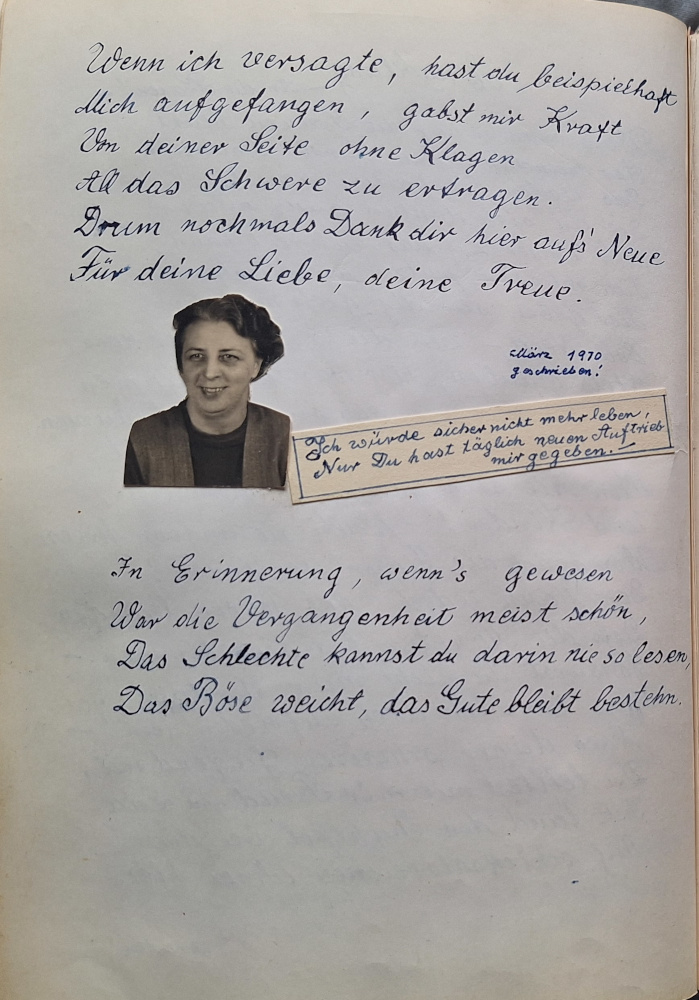 Wenn ich versagte, hast du beispielhaft
Mich aufgefangen, gabst mir Kraft
Von deiner Seite ohne Klagen
All das Schwere zu ertragen.
Drum nochmals Dank dir hier auf's Neue
Für deine Liebe, deine Treue.
März 1970
geschrieben!
Ich würde sicher nicht mehr leben,
Nur Du hast täglich neuen Auftrieb
mir gegeben.—
In Erinnerung, wenn's gewesen
War die Vergangenheit meist schön,
Das Schlechte kannst du darin nie so lesen,
Das Böse weicht, das Gute bleibt bestehn.